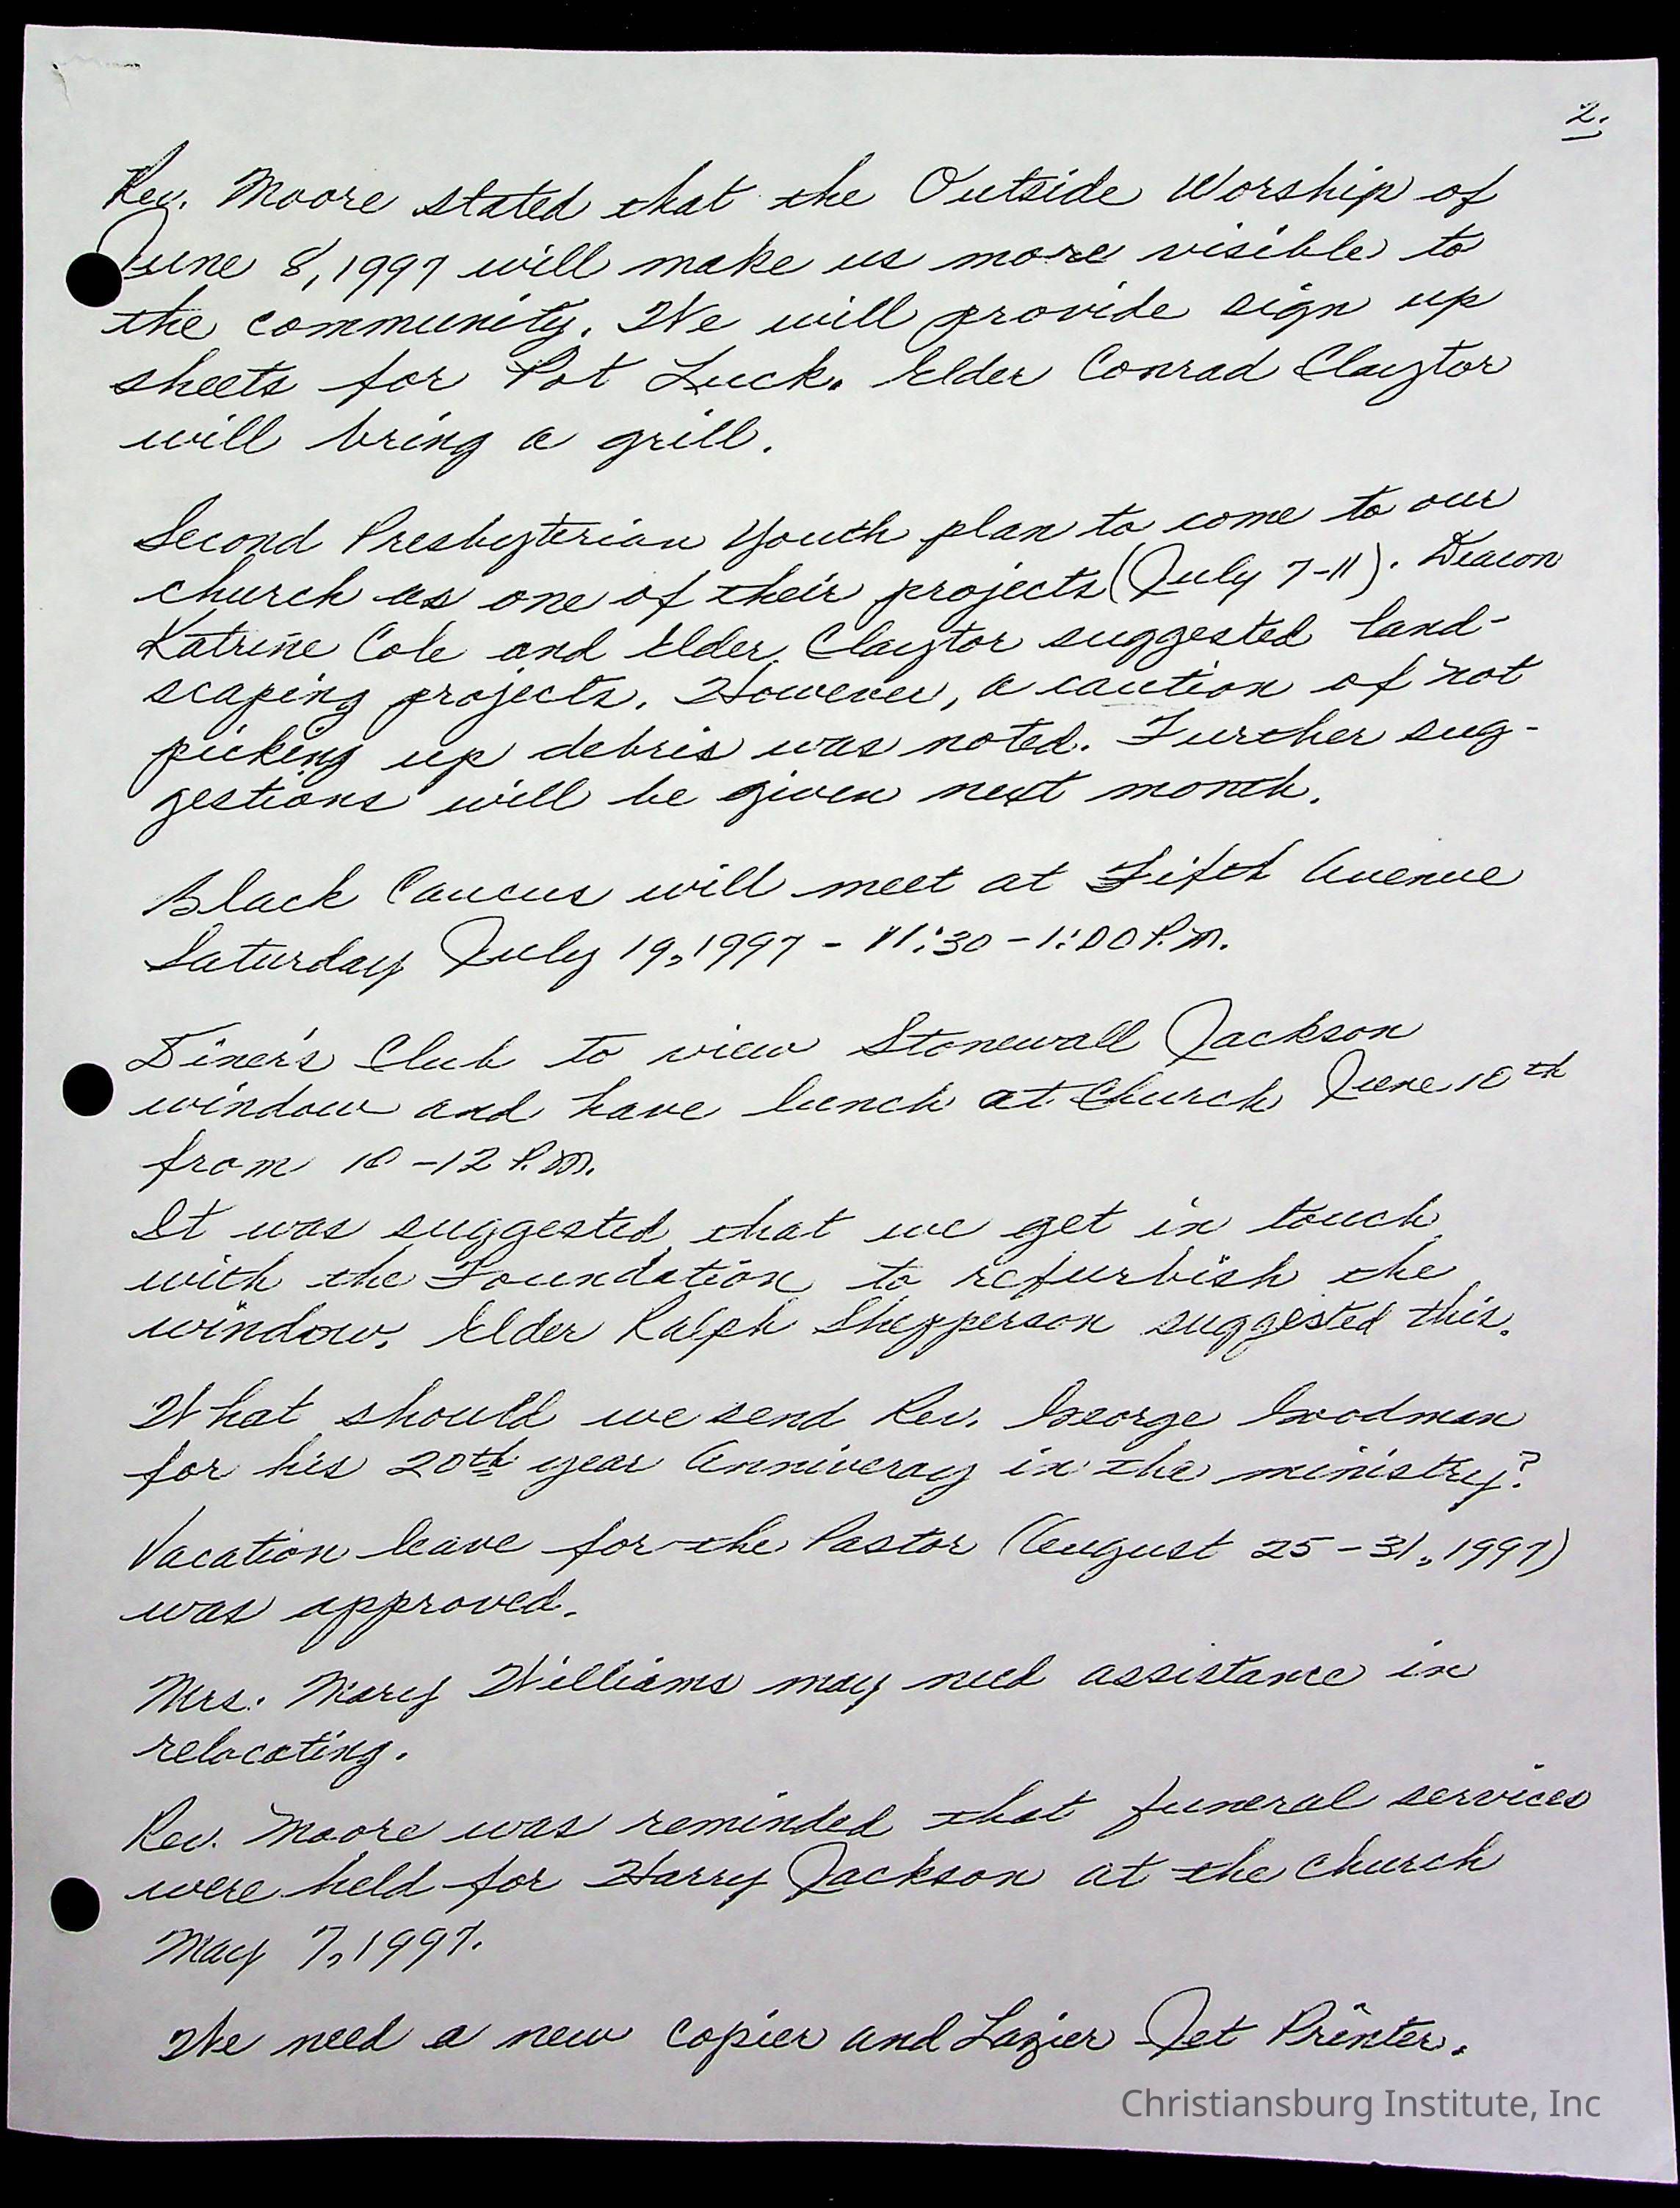 2.
Rev. Moore stated that the Outside Worship of
June 8, 1997 will make us more visible to
the community. We will provide sign up
sheets for Pot Luck. Elder Conrad Claytor
will bring a grill.
Second Presbyterian Youth plan to come to our
church as one of their projects (July 7-11). Deacon
Katrine Cole and Elder Claytor suggested land-
scaping projects. However, a caution of not
picking up debris was noted. Further sug-
gestions will be given next month.
Black Caucus will meet at Fifth Avenue
Saturday July 19, 1997 - 11:30 - 1:00 P.M.
Diner's Club to view Stonewall Jackson
window and have lunch at Church June 10th
from 10-12 P.M.
It was suggested that we get in touch
with the Foundation to refurbish the
window. Elder Ralph Shepperson suggested this.
What should we send Rev. George Goodman
for his 20th year Anniveray in the ministry?
Vacation leave for the Pastor (August 25-31, 1997)
was approved.
Mrs. Mary Williams may need assistance in
relocating.
Rev. Moore was reminded that funeral services
were held for Harry Jackson at the Church
May 7, 1997.
We need a new copier and Lazier Jet Printer.
Christiansburg Institute, Inc